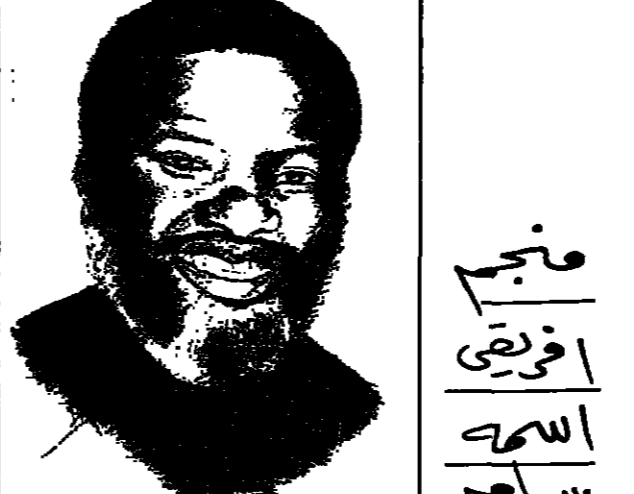 منجم
افريقي
اسمه